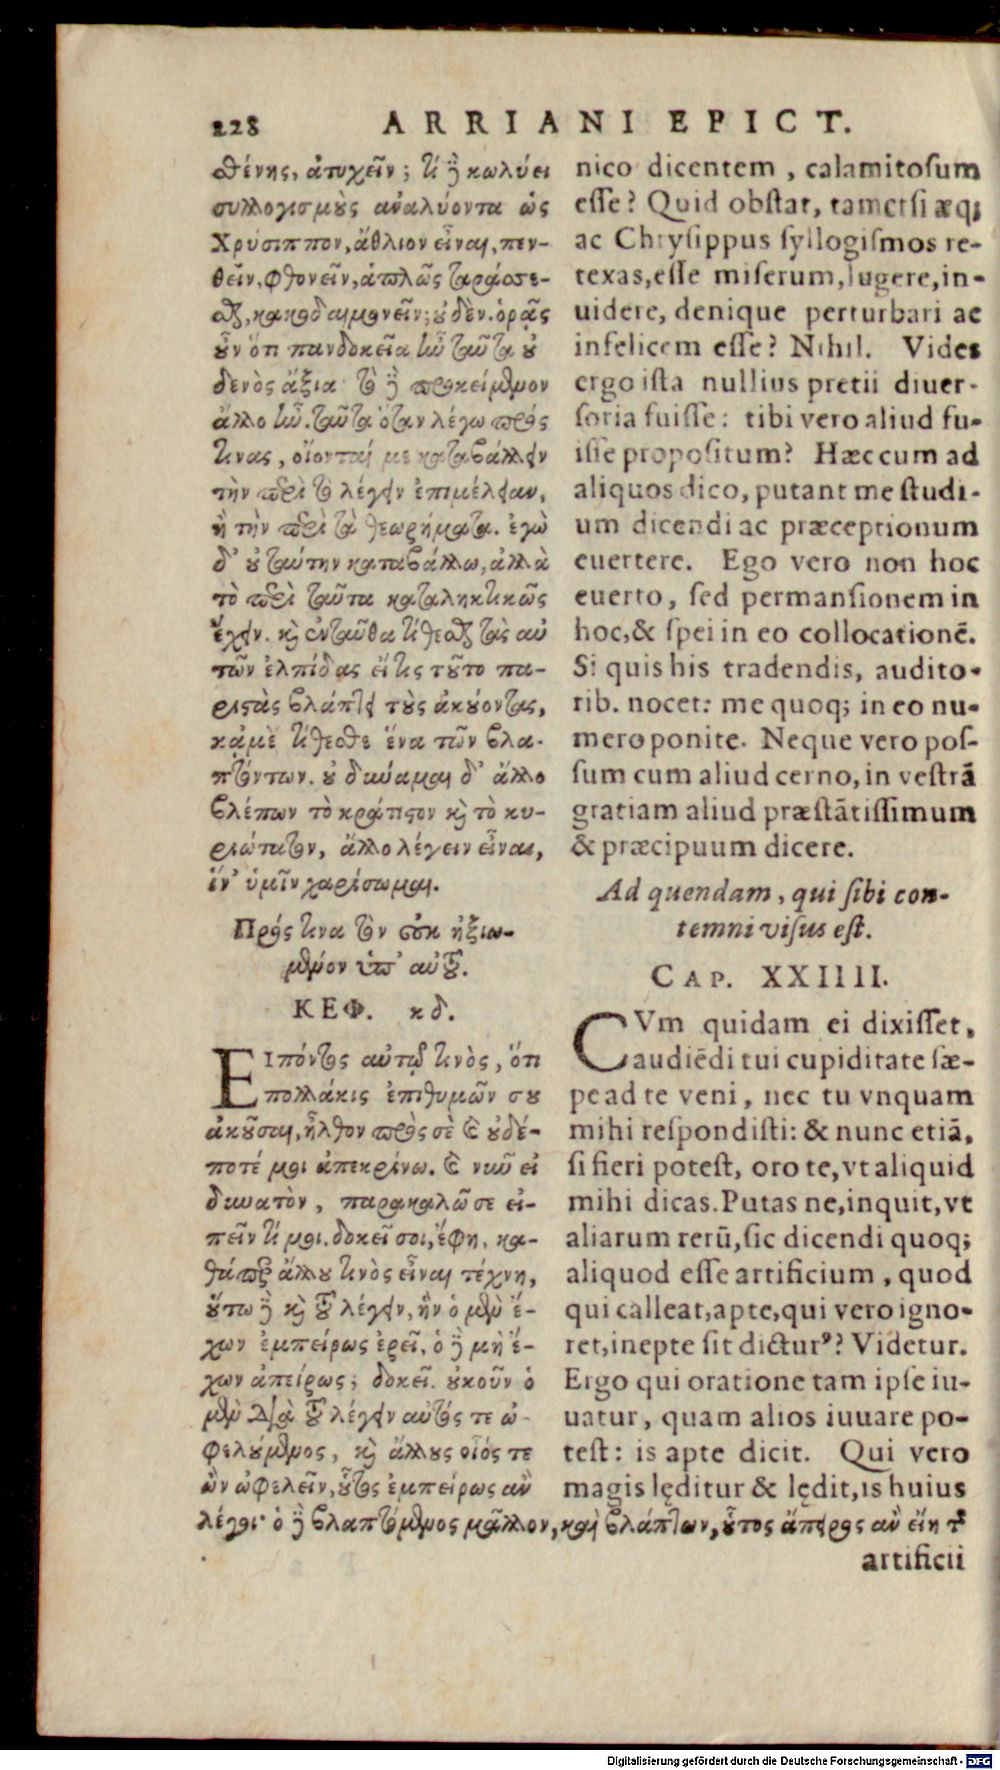 228 ARRIANI EPICT.
σθένης, ἀτυχεῖν; τί γὸ κωλύει
συλλογισμοὺς ἀναλύοντα ὡς
Χρύσιππον, ἄθλιον εἶναι, πεν-
θεῖν, φθονεῖν, ἁπλῶς ταράσσε-
σθαι, κακοδαιμονεῖν; οὐδέν. ὁρᾷς
οὖν ὅτι πανδοκεῖα ἦν ταῦτα οὐ
δενὸς ἄξια· τὸ γὸ προκείμενον
ἄλλο ἦν. ταῦτα ὅταν λέγω πρός
τινας, οἴονταί με καταβάλλειν
τὴν περὶ τὸ λέγειν ἐπιμέλειαν,
ἢ τὴν περὶ τὰ θεωρήματα. ἐγὼ
δ' οὐ ταύτην καταβάλλω, ἀλλὰ
τὸ περὶ ταῦτα καταληκτικῶς
ἔχειν. καὶ ἐνταῦθα τίθεσθαι τὰς αὐ
τῶν ἐλπίδας εἴ τις τοῦτο πα-
ριστὰς βλάπτει τοὺς ἀκούοντας,
κἀμὲ τίθεσθε ἕνα τῶν βλα-
πτόντων. οὐ δύναμαι δ' ἄλλο
βλέπων τὸ κράτιστον καὶ τὸ κυ-
ριώτατον, ἄλλο λέγειν εἶναι,
ἵν' ὑμῖν χαρίσωμαι.
Πρός τινα τὸν οὐκ ἠξιω-
μένον ὑπ' αὐτοῦ.
ΚΕΦ. κδ.
ΕΙπόντος αὐτῷ τινὸς, ὅτι
πολλάκις ἐπιθυμῶν σου
ἀκοῦσαι, ἦλθον πρὸς σὲ καὶ οὐδέ-
ποτέ μοι ἀπεκρίνω. καὶ νῦν εἰ
δυνατὸν, παρακαλῶ σε εἰ-
πεῖν τί μοι. δοκεῖ σοι, ἔφη, κα-
θάπερ ἄλλου τινὸς εἶναι τέχνη,
οὕτω γὸ καὶ τοῦ λέγειν, ἣν ὁ μὲν ἔ-
χων ἐμπείρως ἐρεῖ, ὁ γὸ μὴ ἔ-
χων ἀπείρως; δοκεῖ. οὐκοῦν ὁ
μὲν διὰ τοῦ λέγειν αὐτός τε ὠ-
φελούμενος, καὶ ἄλλους οἷός τε
ὢν ὠφελεῖν, οὗτος ἐμπείρως ἂν
λέγοι· ὁ γὸ βλαπτόμενος μᾶλλον, καὶ βλάπτων, οὗτος ἄπειρος ἂν εἴη τῆς
nico dicentem, calamitosum
esse? Quid obstat, tametsi æq;
ac Chrysippus syllogismos re-
texas, esse miserum, lugere, in-
uidere, denique perturbari ac
infelicem esse? Nihil. Vides
ergo ista nullius pretii diuer-
soria fuisse: tibi vero aliud fu-
isse propositum? Hæc cum ad
aliquos dico, putant me studi-
um dicendi ac præceptionum
euertere. Ego vero non hoc
euerto, sed permansionem in
hoc, & spei in eo collocationē.
Si quis his tradendis, audito-
rib. nocet: me quoq; in eo nu-
mero ponite. Neque vero pos-
sum cum aliud cerno, in vestrā
gratiam aliud præstātissimum
& præcipuum dicere.
Ad quendam, qui sibi con-
temni visus est.
CAP. XXIIII.
CVm quidam ei dixisset,
audiēdi tui cupiditate sæ-
pe ad te veni, nec tu vnquam
mihi respondisti: & nunc etiā,
si fieri potest, oro te, vt aliquid
mihi dicas. Putas ne, inquit, vt
aliarum rerū, sic dicendi quoq;
aliquod esse artificium, quod
qui calleat, apte, qui vero igno-
ret, inepte sit dicturꝰ? Videtur.
Ergo qui oratione tam ipse iu-
uatur, quam alios iuuare po-
test: is apte dicit. Qui vero
magis lęditur & lędit, is huius
artificii
Digitalisierung gefördert durch die Deutsche Forschungsgemeinschaft - DFG